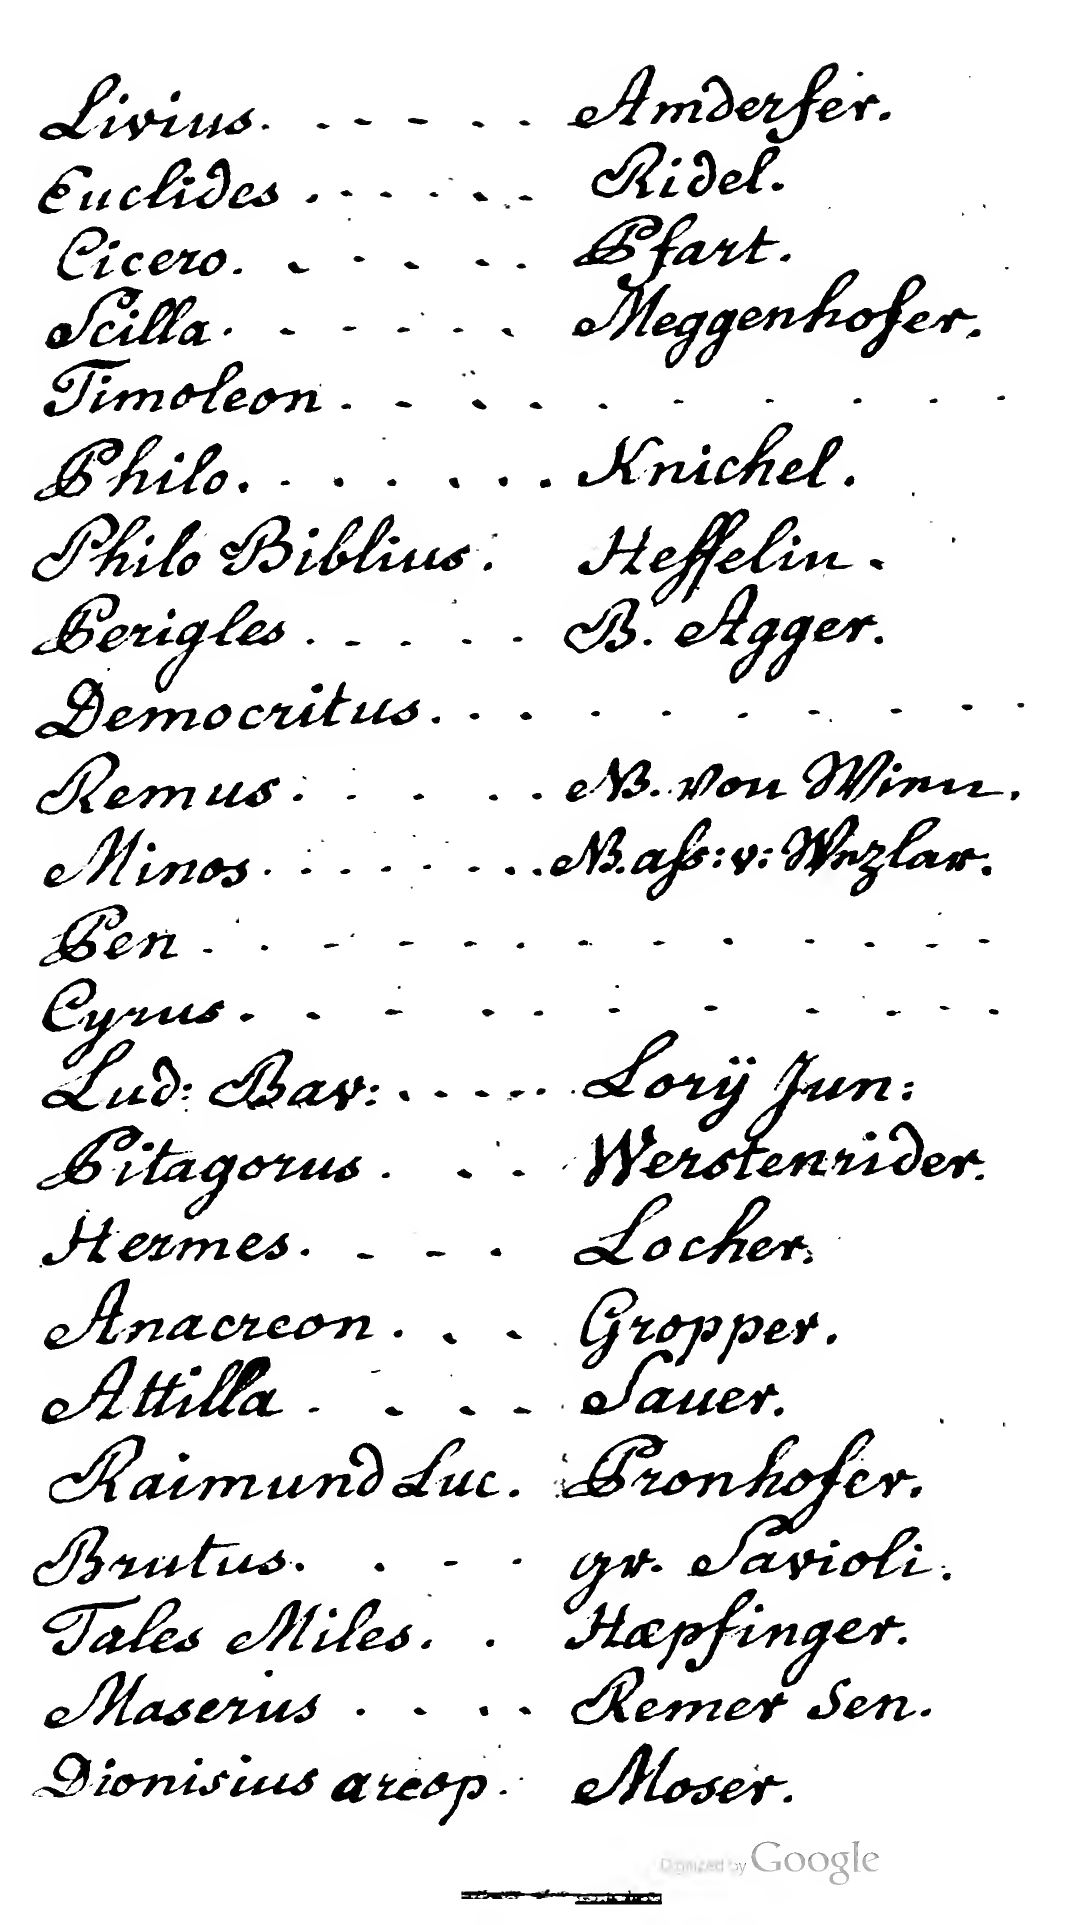 Livius. - - - - - Amderfer.
Euclides . - - - - - Ridel.
Cicero. - - - - - Pfart.
Scilla. - - - - - Meggenhofer.
Timoleon . - - - - - - - - -
Philo. . . . . . . Knichel.
Philo Biblius. Heffelin.
Perigles . - - - - B. Agger.
Democritus. . . . . . . . . .
Remus. . . . . . NB. von Wien.
Minos . . . . . . . . NB. ass: v: Wezlar.
Pen . . - - - - - - - - - - -
Cyrus. . - - - - - - - -
Lud: Bav: . - - - - Lorÿ Jun:
Pitagorus . . . Werstenrider.
Hermes. - - - Locher.
Anacreon . . . Gropper.
Attilla . - - - Sauer.
Raimund Luc. Pronhofer.
Brutus. . - - gr. Savioli.
Tales Miles. . Hæpfinger.
Maserius . - - - Remer Sen.
Dionisius areop. Moser.
Digitized by Google